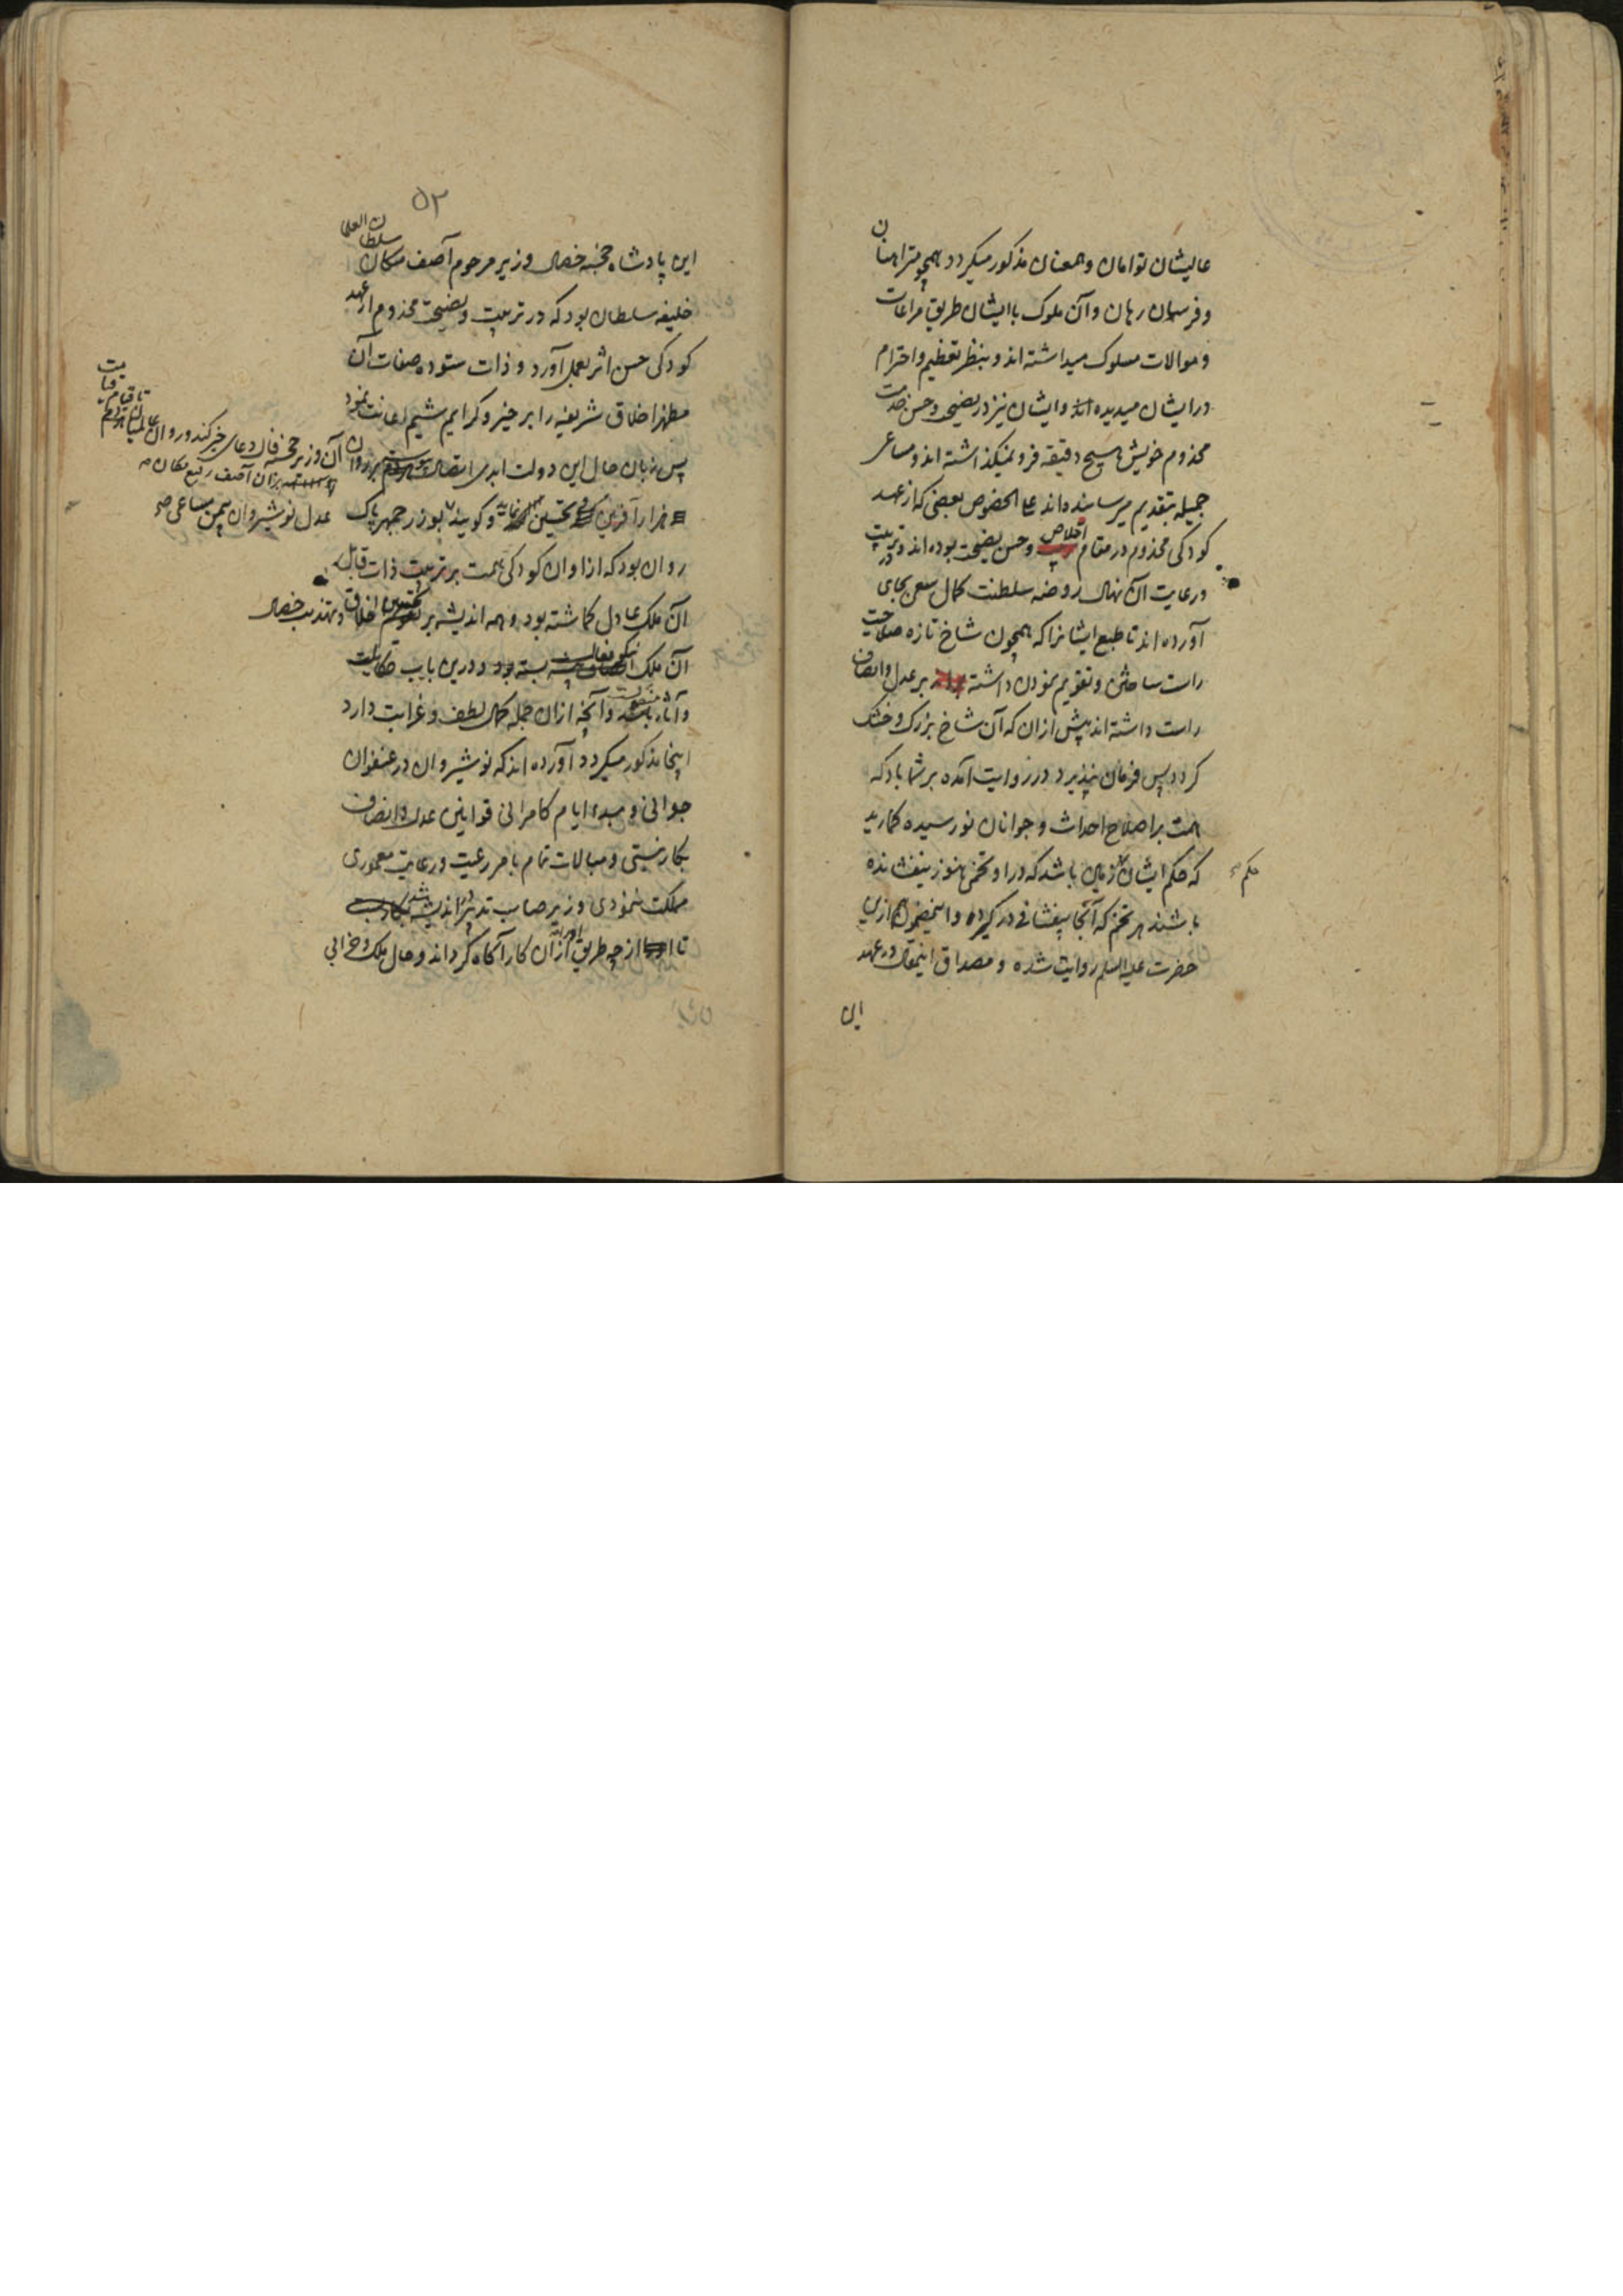 عالیشان توامان و همعنان مذکور میکردد همچو متراهنان
و فرسان رهان و آن ملوک با ایشان طریق مراعات
و موالات مسلوک میداشته اند و بنظر تعظیم و احترام
در ایشان میدیده اند و ایشان نیز در نصیحت و حسن خدمت
مخدوم خویش هیچ دقیقه فرو نمیکذاشته اند و مساعی
جمیله بتقدیم میرسانیده اند علی الخصوص بعضی که از عهد
کودکی مخدوم در مقام اخلاص و حسن نصیحت بوده اند و در تربیت
و رعایت آن نهال روضه سلطنت کمال سعی بجای
آورده اند تا طبع ایشانرا که همچون شاخ تازه صلاحیت
راست ساختن و تقویم نمودن داشته بر عدل و انصاف
راست داشته اند پیش ازان که آن شاخ بزرک و خشک
کردد پس فرمان نپذیرد در روایت آمده بر شما باد که
همت بر اصلاح احداث و جوانان نورسیده کمارید
که حکم ایشان حکم زمین باشد که در او تخمی هنوز نیفشانده
باشند هر تخم که آنجا بیفشانی در کیرد و این مضمون هم ازین
حضرت علیه السلم روایت شده و مصداق اینمقال در عهد
این
حکم
۵۲
این پادشاه خجسته خصال وزیر مرحوم آصف مکان سلطان العلما
خلیفه سلطان بود که در تربیت و نصیحت مخدوم از عهد
کودکی حسن اثر بعمل آورد و ذات ستوده صفات آن
مظهر اخلاق شریفه را بر خیر و کرایم شیم اعانت نمود
پس زبان حال این دولت ابدی اتصال بر روان
آن وزیر خجسته فال دعای خیر کند و روان
بران آصف رفیع مکان
عدل نوشیروان بیمن مساعی
هزار آفرین و تحسین نماید و کویند بوزرجمهر پاک
روان بود که از اوان کودکی همت بر تربیت ذات قابل
آن ملک عادل کماشته بود و همه اندیشه بر تحسین اخلاق و تهذیب خصال
آن ملک نیکو فعال بسته بود و درین باب حکایات
و آثار منقولست و آنچه ازان جمله کمال لطف و غرابت دارد
اینجا مذکور میکردد آورده اند که نوشیروان در عنفوان
جوانی و مبدء ایام کامرانی قوانین عدل و انصاف
بکار نبستی و مبالات تمام بامر رعیت و رعایت معموری
مملکت ننمودی وزیر صایب تدبیر در اندیشه شد
تا او را از چه طریق ازان کار آکاه کرداند و حال ملک و خرابی